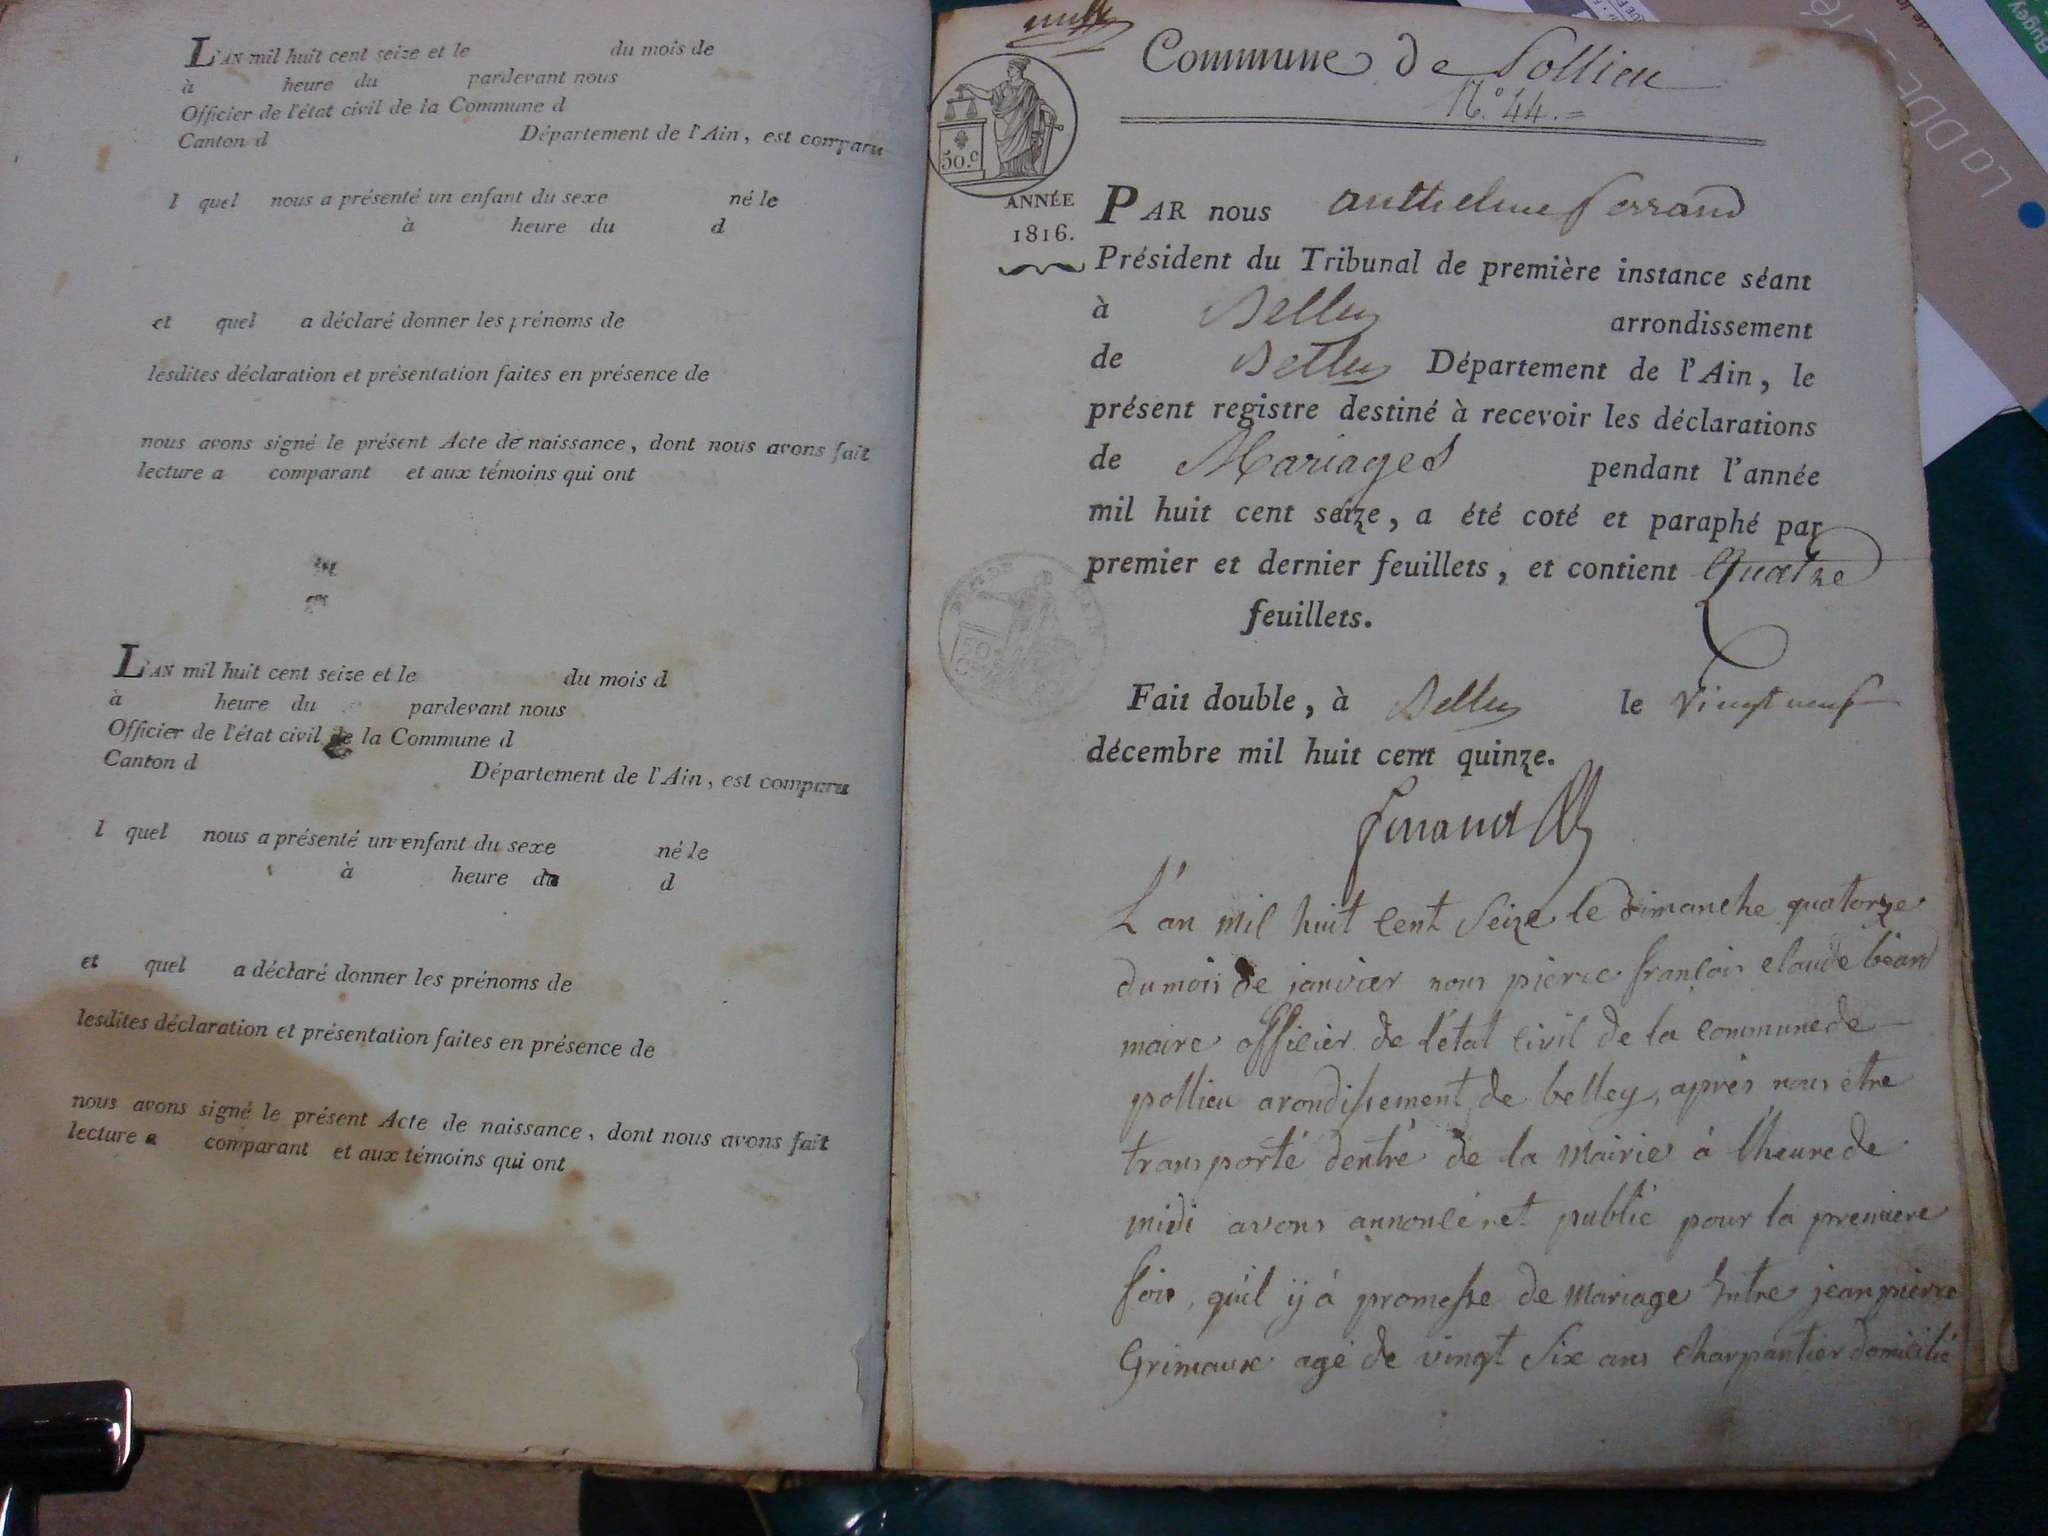 L'AN mil huit cent seize et le du mois de
à heure du pardevant nous
Officier de l'état civil de la Commune d
Canton d Département de l'Ain, est comparu
l quel nous a présenté un enfant du sexe né le
à heure du d
et quel a déclaré donner les prénoms de
lesdites déclaration et présentation faites en présence de
nous avons signé le présent Acte de naissance, dont nous avons fait
lecture a comparant et aux témoins qui ont
L'AN mil huit cent seize et le du mois d
à heure du pardevant nous
Officier de l'état civil de la Commune d
Canton d Département de l'Ain, est comparu
l quel nous a présenté un enfant du sexe né le
à heure du d
et quel a déclaré donner les prénoms de
lesdites déclaration et présentation faites en présence de
nous avons signé le présent Acte de naissance, dont nous avons fait
lecture a comparant et aux témoins qui ont
Commune de Pollieu
N.° 44. =
50.c
ANNÉE
1816.
PAR nous anthelme ferrand
Président du Tribunal de première instance séant
à Belley arrondissement
de Belley Département de l'Ain, le
présent registre destiné à recevoir les déclarations
de Mariages pendant l'année
mil huit cent seize, a été coté et paraphé par
premier et dernier feuillets, et contient Quatre
feuillets.
Fait double, à Belley le vingt neuf
décembre mil huit cent quinze.
ferrand
L'an mil huit cent Seize le dimanche quatorze
du mois de janvier nous pierre françois claude béard
maire officier de l'état civil de la commune de
pollieu arondissement de belley, après nous etre
transporté dentré de la mairie à l'heure de
midi avons annoncé et publié pour la premiere
fois, qu'il ÿ à promesse de mariage Entre jean pierre
Grimaux agé de vingt Six ans charpantier domicilié
La DDE
Bugey